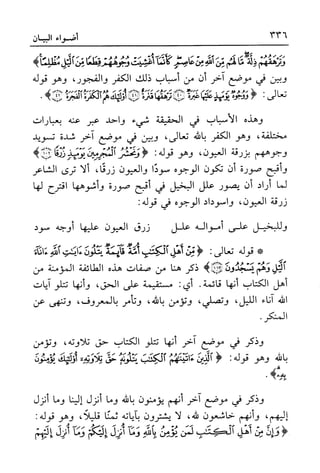 ٣٣٦ أضواء البيان
وَتَرْهَقُهُمْ ذِلَّةٌ مَّا لَهُم مِّنَ اللَّهِ مِنْ عَاصِمٍ كَأَنَّمَا أُغْشِيَتْ وُجُوهُهُمْ قِطَعًا مِّنَ اللَّيْلِ مُظْلِمًا﴾
وبين في موضع آخر أن من أسباب ذلك الكفر والفجور، وهو قوله
تعالى: ﴿وَوُجُوهٌ يَوْمَئِذٍ عَلَيْهَا غَبَرَةٌ ۝٤٠ تَرْهَقُهَا قَتَرَةٌ ۝٤١ أُولَٰئِكَ هُمُ الْكَفَرَةُ الْفَجَرَةُ ۝٤٢﴾.
وهذه الأسباب في الحقيقة شيء واحد عبر عنه بعبارات
مختلفة، وهو الكفر بالله تعالى، وبين في موضع آخر شدة تسويد
وجوههم بزرقة العيون، وهو قوله: ﴿وَنَحْشُرُ الْمُجْرِمِينَ يَوْمَئِذٍ زُرْقًا ۝١٠٢﴾
وأقبح صورة أن تكون الوجوه سودًا والعيون زرقًا، ألا ترى الشاعر
لما أراد أن يصور علل البخيل في أقبح صورة وأشوهها اقترح لها
زرقة العيون، واسوداد الوجوه في قوله:
وللبخيـل علـى أمـوالـه علـل زرق العيون عليها أوجه سود
* قوله تعالى: ﴿مِّنْ أَهْلِ الْكِتَابِ أُمَّةٌ قَائِمَةٌ يَتْلُونَ آيَاتِ اللَّهِ آنَاءَ
اللَّيْلِ وَهُمْ يَسْجُدُونَ ۝١١٣﴾ ذكر هنا من صفات هذه الطائفة المؤمنة من
أهل الكتاب أنها قائمة. أي: مستقيمة على الحق، وأنها تتلو آيات
الله آناء الليل، وتصلي، وتؤمن بالله، وتأمر بالمعروف، وتنهى عن
المنكر.
وذكر في موضع آخر أنها تتلو الكتاب حق تلاوته، وتؤمن
بالله وهو قوله: ﴿الَّذِينَ آتَيْنَاهُمُ الْكِتَابَ يَتْلُونَهُ حَقَّ تِلَاوَتِهِ أُولَٰئِكَ يُؤْمِنُونَ
بِهِ﴾.
وذكر في موضع آخر أنهم يؤمنون بالله وما أنزل إلينا وما أنزل
إليهم، وأنهم خاشعون لله، لا يشترون بآياته ثمنًا قليلاً، وهو قوله:
﴿وَإِنَّ مِنْ أَهْلِ الْكِتَابِ لَمَن يُؤْمِنُ بِاللَّهِ وَمَا أُنزِلَ إِلَيْكُمْ وَمَا أُنزِلَ إِلَيْهِمْ